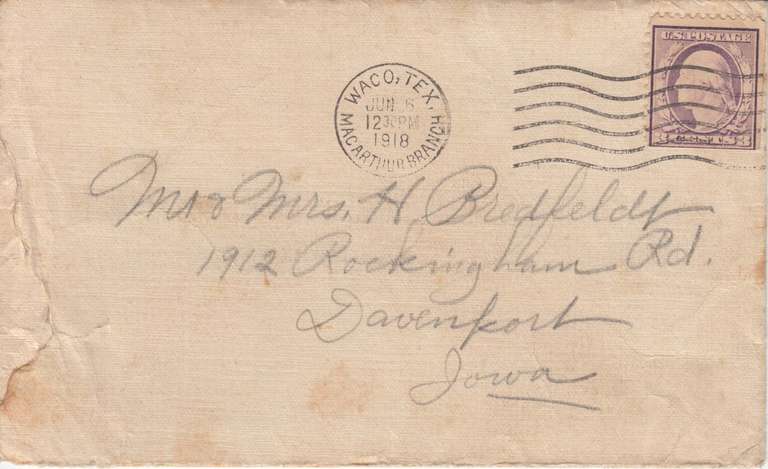 U.S. POSTAGE
WACO, TEX.
JUN 6
12 30 PM
1918
MACARTHUR BRANCH
3 3
Mr & Mrs. H. Bredfeldt
1912 Rockingham Rd.
Davenport
Iowa